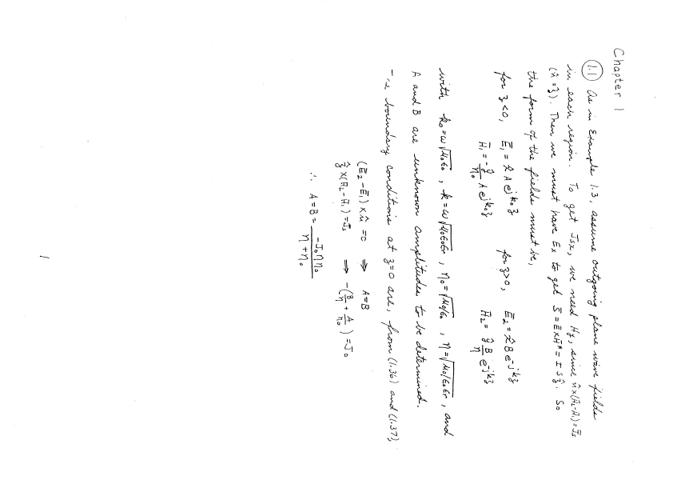 Chapter 1
(1.1) As in Example 1.3, assume outgoing plane wave fields
in each region. To get Jsx, we need Hy, since n̂×(H̄₂-H̄₁)=J̄s
(n̂=ẑ). Then we must have Ex to get S̄=Ē×H̄*=±Sẑ. So
the form of the fields must be,
for z<0, Ē₁=x̂ A e^{jk₀z} for z>0, Ē₂=x̂ B e^{-jkz}
H̄₁=-ŷ/η₀ A e^{jk₀z} H̄₂=ŷ B/η e^{-jkz}
with k₀=ω√μ₀ε₀, k=ω√μ₀ε₀εr, η₀=√μ₀/ε₀, η=√μ₀/ε₀εr, and
A and B are unknown amplitudes to be determined.
boundary conditions at z=0 are, from (1.36) and (1.37),
(Ē₂-Ē₁)×n̂=0 ⇒ A=B
ẑ×(H̄₂-H̄₁)=J̄s ⇒ -(B/η + A/η₀)=J₀
∴ A=B= -J₀ηη₀/(η+η₀)
1